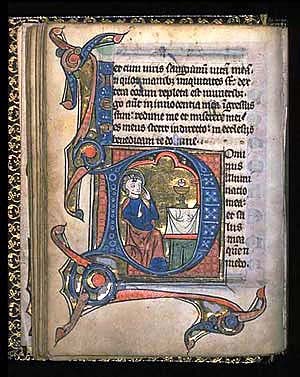 et cum uiris sanguinum uitam mea
In quorum manibus iniquitates st: dex
tera eorum repleta est munerib;
Ego aute in innocentia mea ingressus
sum: redime me et miserere mei
Pes meus stetit in directo: in ecclesiis
benedicam te domine
Domi
nus
illumi
natio
mea
et sa
lus
mea
quem ti
mebo